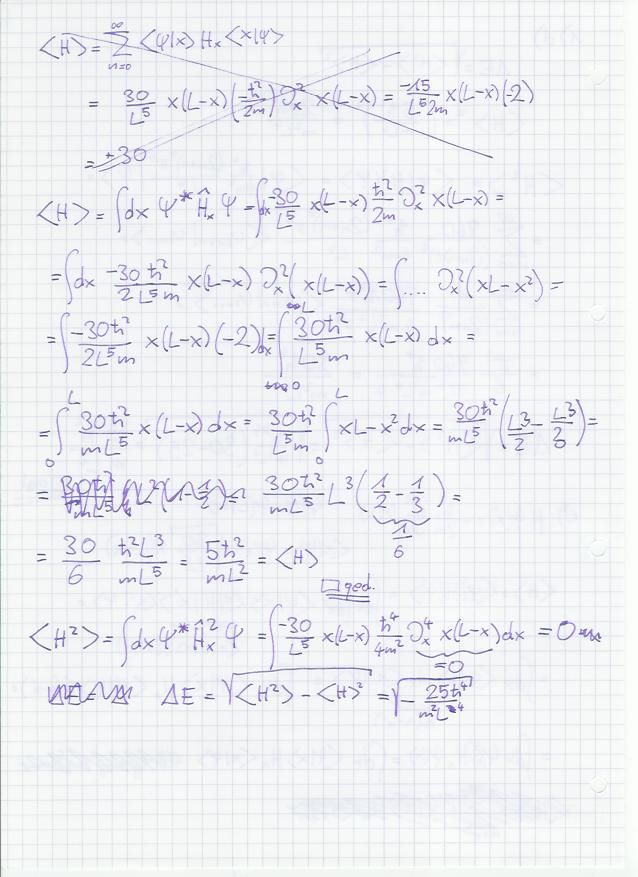 ⟨H⟩ = ∑_{n=0}^{∞} ⟨ψ|x⟩ H_x ⟨x|ψ⟩
= 30/L⁵ x(L-x) (-ħ²/2m) ∂_x² x(L-x) = -15/(L⁵2m) x(L-x)(-2)
= +30
⟨H⟩ = ∫dx ψ* Ĥ_x ψ = ∫dx -30/L⁵ x(L-x) ħ²/2m ∂_x² x(L-x) =
= ∫dx -30ħ²/(2L⁵m) x(L-x) ∂_x²(x(L-x)) = ∫.... ∂_x²(xL-x²) =
= ∫ -30ħ²/(2L⁵m) x(L-x)(-2)dx = ∫_0^L 30ħ²/(L⁵m) x(L-x) dx =
= ∫_0^L 30ħ²/(mL⁵) x(L-x) dx = 30ħ²/(L⁵m) ∫_0^L xL-x² dx = 30ħ²/(mL⁵) (L³/2 - L³/3) =
= 30ħ²/(mL⁵) L³ (1/2 - 1/3) =
1/6
= 30/6 ħ²L³/(mL⁵) = 5ħ²/(mL²) = ⟨H⟩
□ qed.
⟨H²⟩ = ∫dx ψ* Ĥ_x² ψ = ∫ -30/L⁵ x(L-x) ħ⁴/4m² ∂_x⁴ x(L-x) dx = 0
=0
ΔE = √(⟨H²⟩ - ⟨H⟩²) = √(- 25ħ⁴/(m²L⁴))